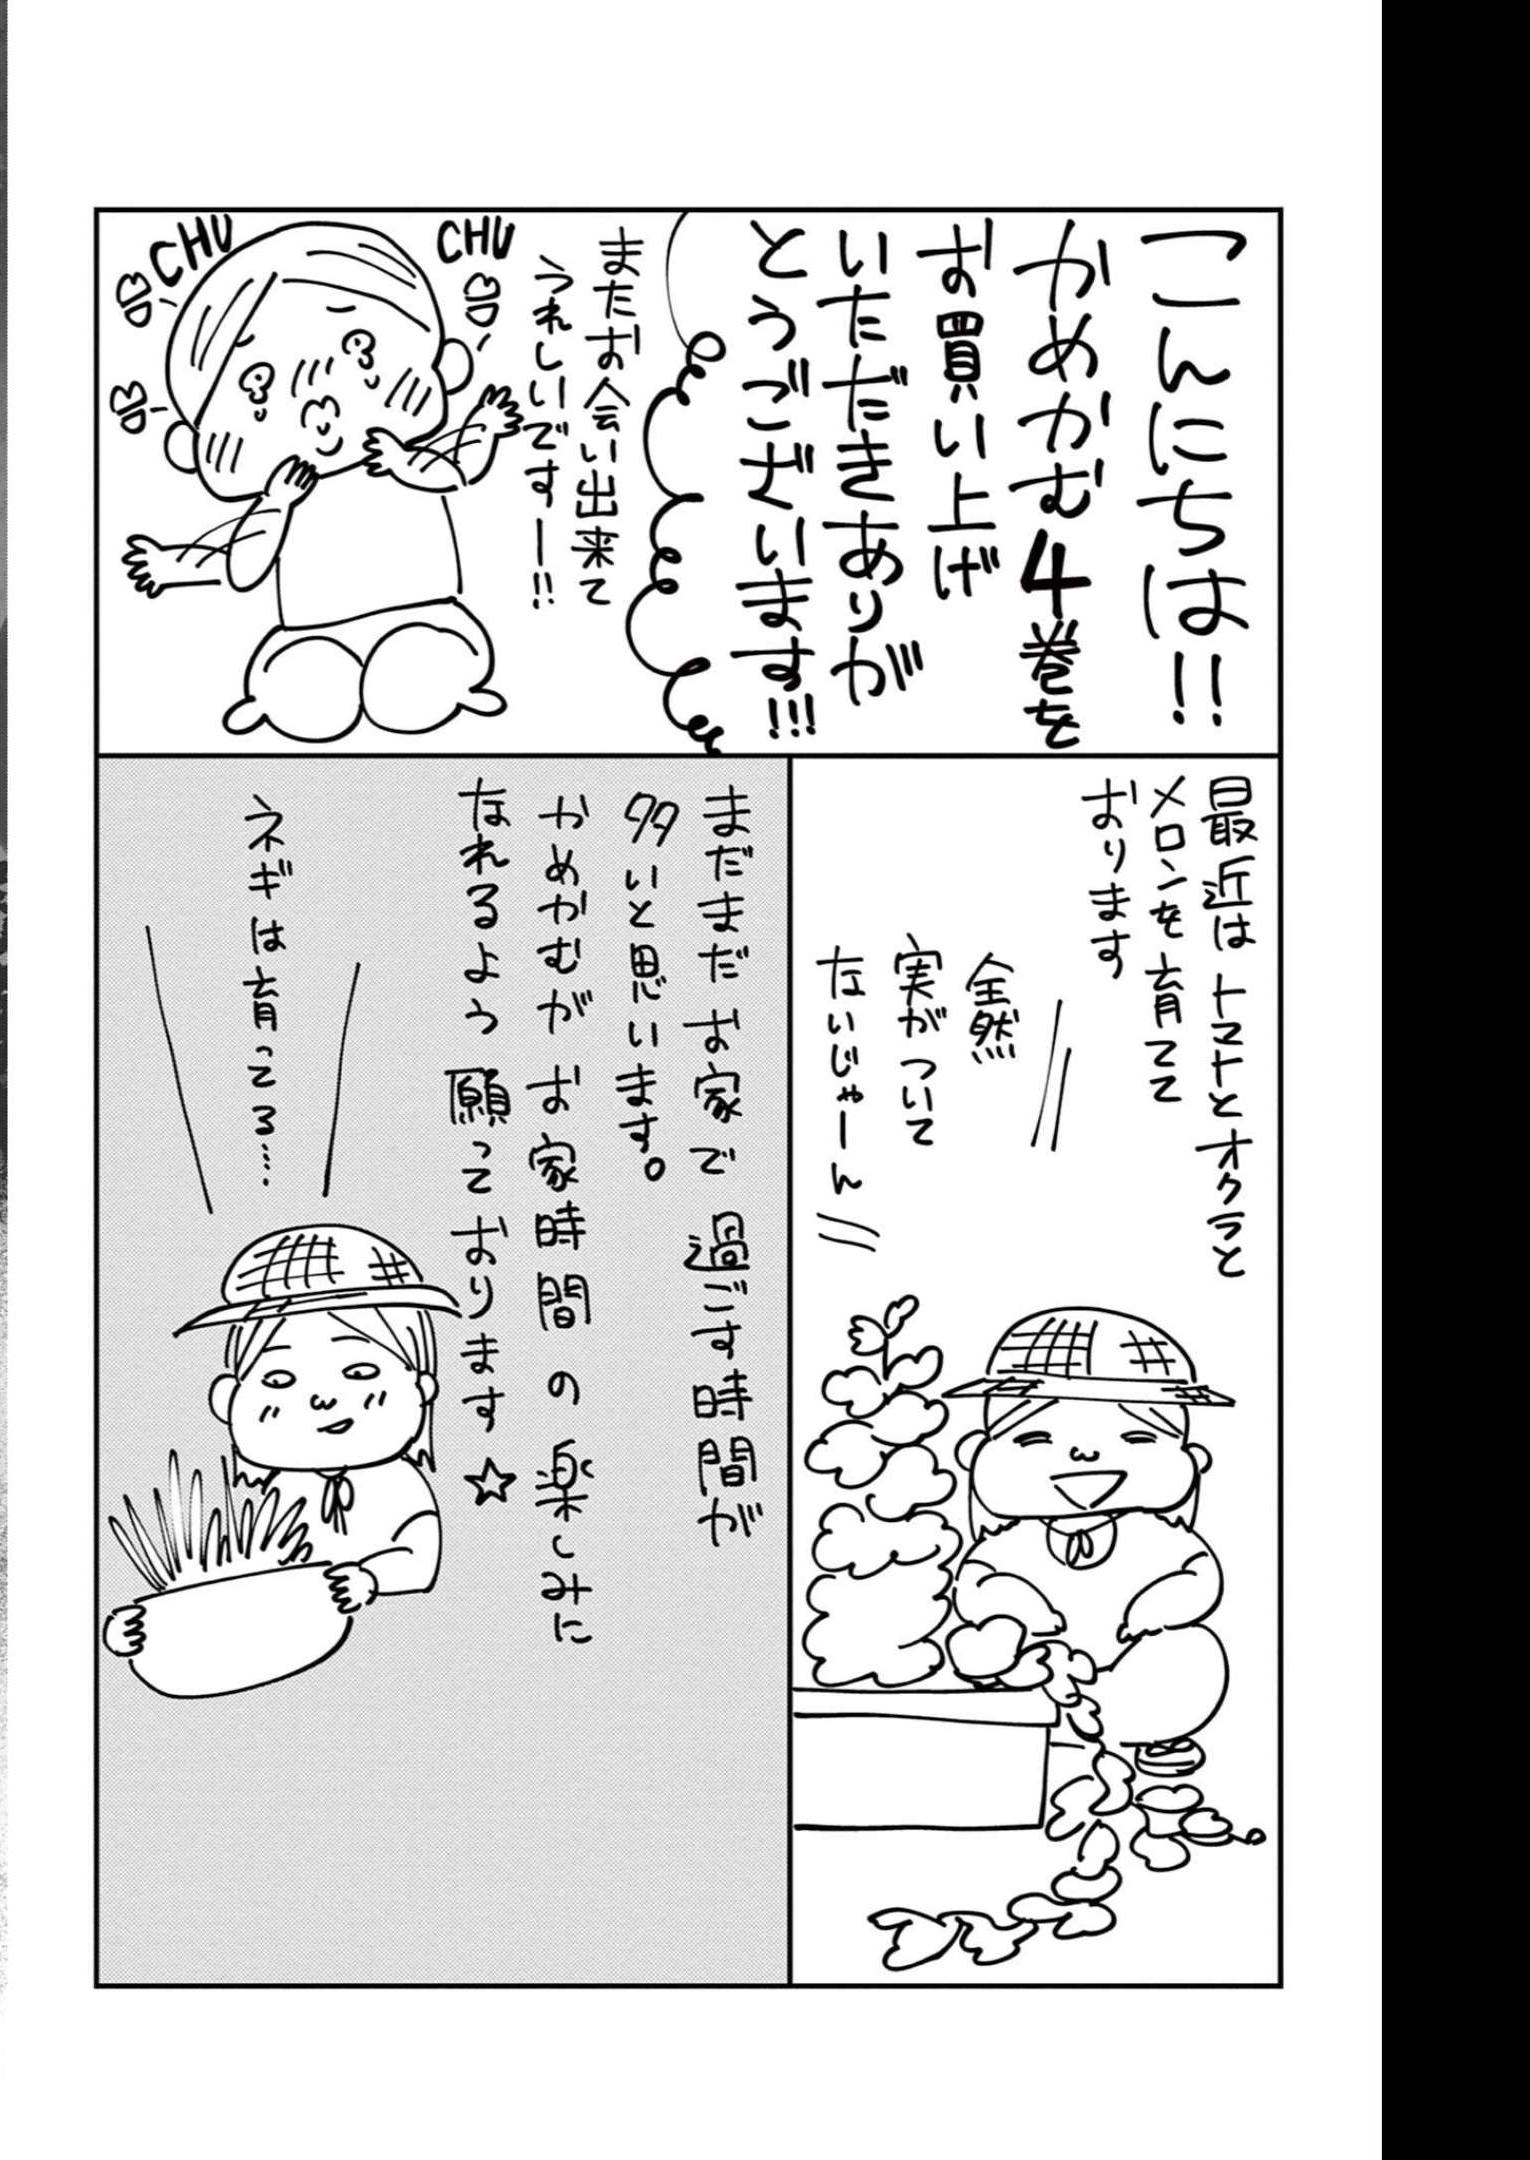 こんにちは!!
かめかむ4巻を
お買い上げ
いただきありが
とうございます!!!
またお会い出来て
うれしいですー!!
CHU
CHU
最近はトマトとオクラと
メロンを育てて
おります
全然
実がついて
ないじゃーん
まだまだお家で過ごす時間が
多いと思います。
かめかむがお家時間の楽しみに
なれるよう願っております☆
ネギは育ってる…